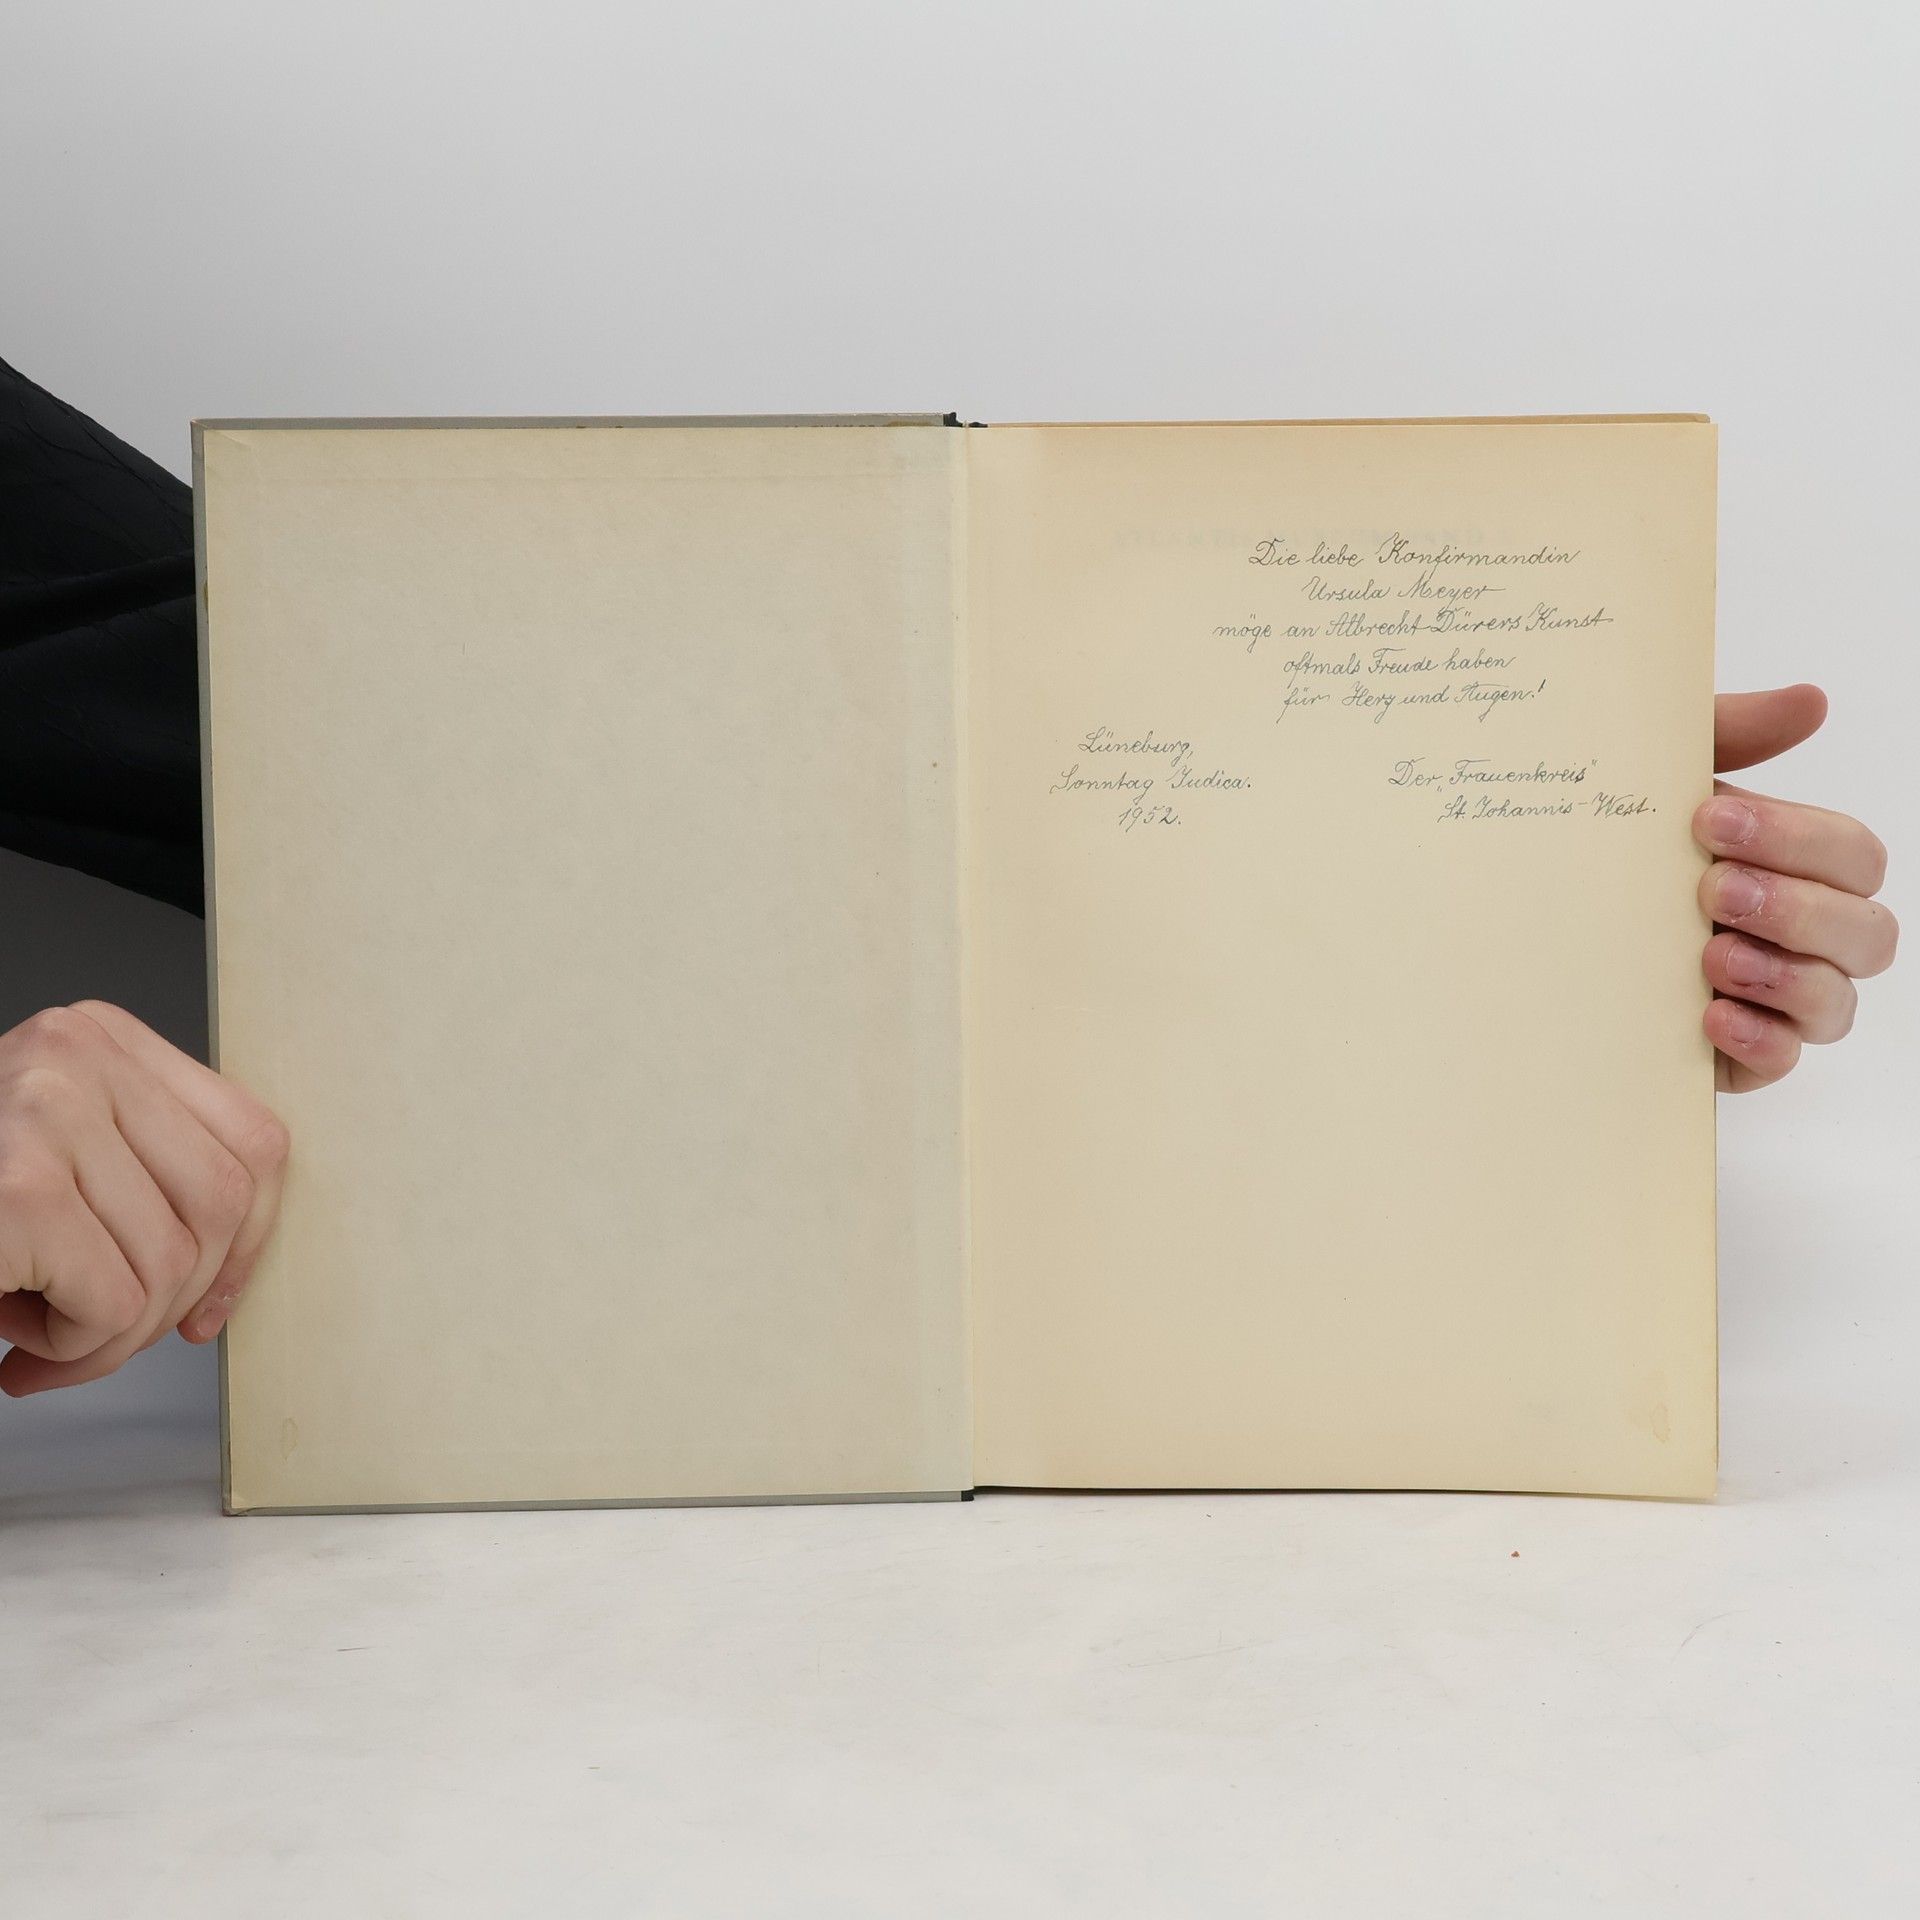 Die liebe Konfirmandin
Ursula Meyer
möge an Albrecht Dürers Kunst
oftmals Freude haben
für Herz und Augen!
Lüneburg,
Sonntag Judica.
1952.
Der „Frauenkreis"
St. Johannis-West.